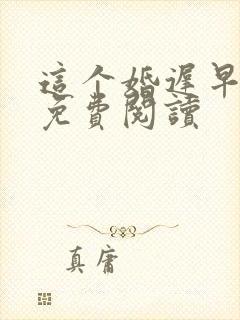 這个婚遲早
免費閱讀
真庸